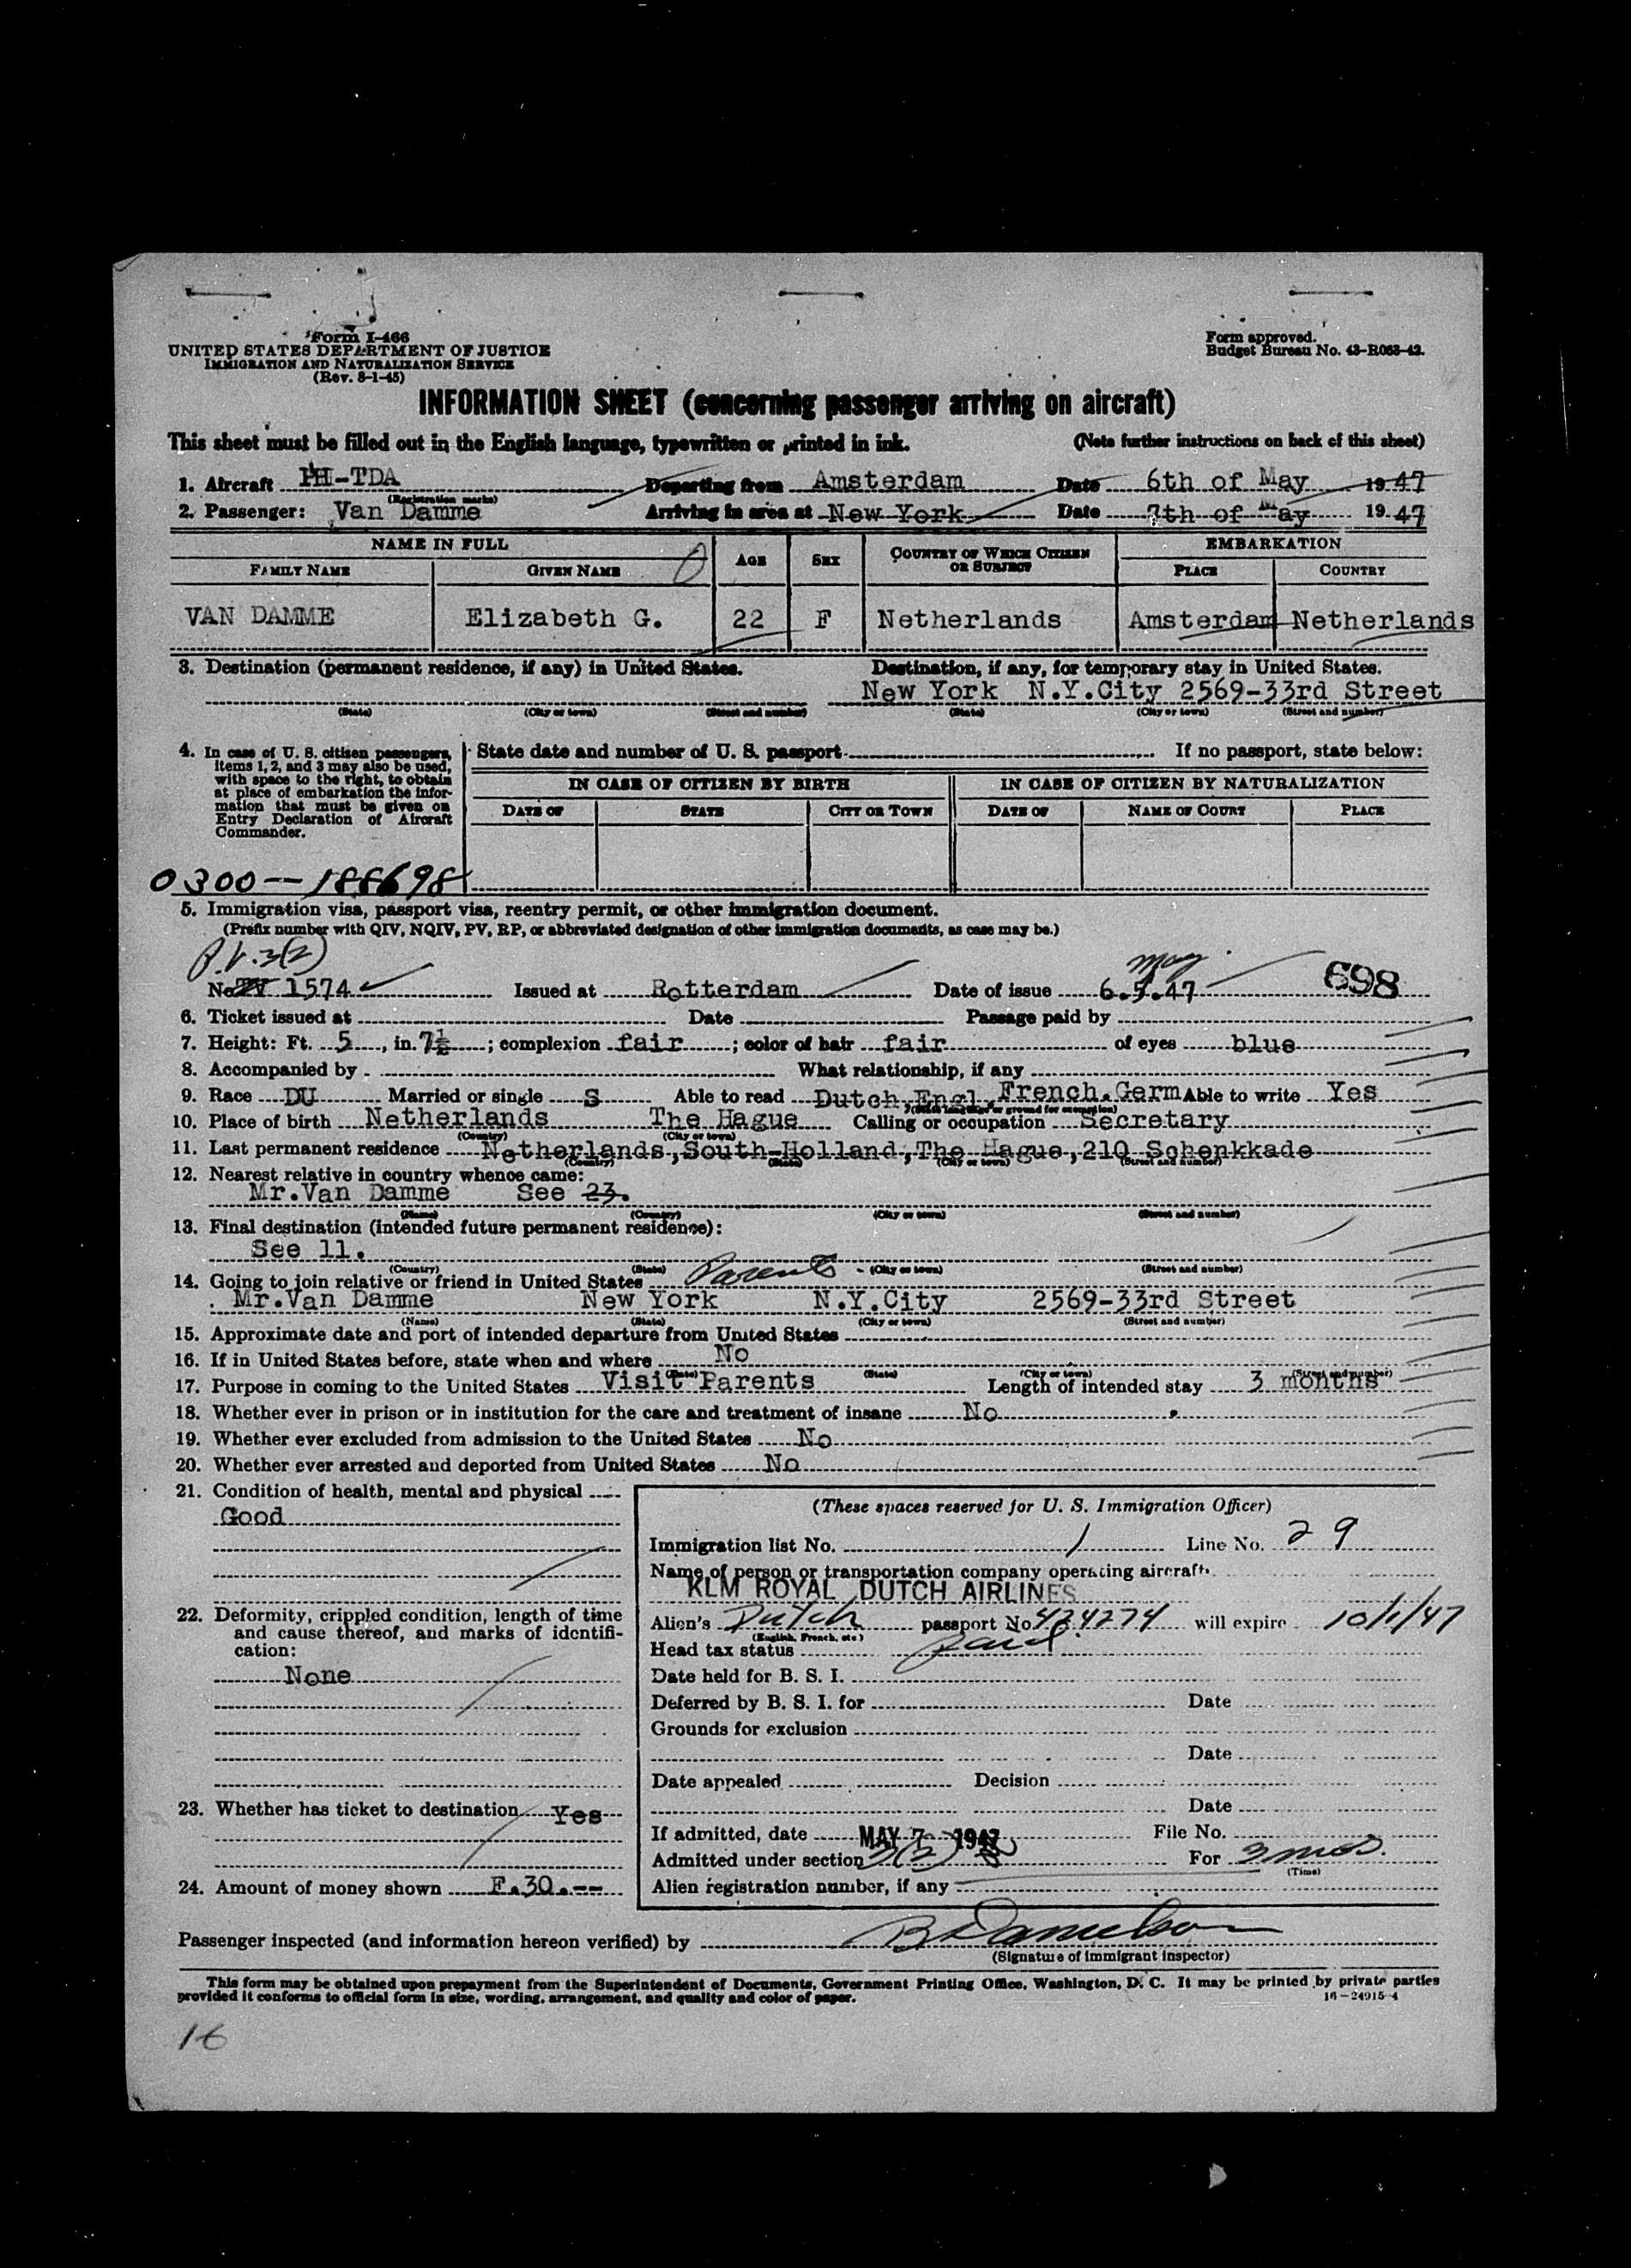 Form I-466
UNITED STATES DEPARTMENT OF JUSTICE
IMMIGRATION AND NATURALIZATION SERVICE
(Rev. 8-1-45)
Form approved.
Budget Bureau No. 43-R063-42.
INFORMATION SHEET (concerning passenger arriving on aircraft)
This sheet must be filled out in the English language, typewritten or printed in ink. (Note further instructions on back of this sheet)
1. Aircraft PH-TDA Departing from Amsterdam Date 6th of May 1947
(Registration marks)
2. Passenger: Van Damme Arriving in area at New York Date 7th of May 1947
NAME IN FULL AGE SEX COUNTRY OF WHICH CITIZEN OR SUBJECT EMBARKATION
FAMILY NAME GIVEN NAME PLACE COUNTRY
VAN DAMME Elizabeth G. 22 F Netherlands Amsterdam Netherlands
3. Destination (permanent residence, if any) in United States. Destination, if any, for temporary stay in United States.
New York N.Y.City 2569-33rd Street
(State) (City or town) (Street and number) (State) (City or town) (Street and number)
4. In case of U. S. citizen passengers, items 1, 2, and 3 may also be used, with space to the right, to obtain at place of embarkation the information that must be given on Entry Declaration of Aircraft Commander.
State date and number of U. S. passport If no passport, state below:
IN CASE OF CITIZEN BY BIRTH IN CASE OF CITIZEN BY NATURALIZATION
DATE OF STATE CITY OR TOWN DATE OF NAME OF COURT PLACE
0300--188698
5. Immigration visa, passport visa, reentry permit, or other immigration document.
(Prefix number with QIV, NQIV, PV, RP, or abbreviated designation of other immigration documents, as case may be.)
P.V. 3(2) may
No TV 1574 Issued at Rotterdam Date of issue 6.5.47 698
6. Ticket issued at Date Passage paid by
7. Height: Ft. 5, in. 7½; complexion fair; color of hair fair of eyes blue
8. Accompanied by What relationship, if any
9. Race DU Married or single S Able to read Dutch, Engl, French. Germ Able to write Yes
(State language or ground for exemption)
10. Place of birth Netherlands The Hague Calling or occupation Secretary
(Country) (City or town)
11. Last permanent residence Netherlands, South-Holland, The Hague, 210 Schenkkade
(Country) (State) (City or town) (Street and number)
12. Nearest relative in country whence came:
Mr.Van Damme See 23.
(Name) (Country) (City or town) (Street and number)
13. Final destination (intended future permanent residence):
See 11.
(Country) (State) (City or town) (Street and number)
14. Going to join relative or friend in United States Parents
Mr.Van Damme New York N.Y.City 2569-33rd Street
(Name) (State) (City or town) (Street and number)
15. Approximate date and port of intended departure from United States
16. If in United States before, state when and where No
(Date) (State) (City or town) (Street and number)
17. Purpose in coming to the United States Visit Parents Length of intended stay 3 months
18. Whether ever in prison or in institution for the care and treatment of insane No
19. Whether ever excluded from admission to the United States No
20. Whether ever arrested and deported from United States No
21. Condition of health, mental and physical
Good
22. Deformity, crippled condition, length of time and cause thereof, and marks of identification:
None
23. Whether has ticket to destination Yes
24. Amount of money shown F.30.--
(These spaces reserved for U. S. Immigration Officer)
Immigration list No. 1 Line No. 29
Name of person or transportation company operating aircraft
KLM ROYAL DUTCH AIRLINES
Alien's Dutch passport No 424274 will expire 10/1/47
(English, French, etc.)
Head tax status paid
Date held for B. S. I.
Deferred by B. S. I. for Date
Grounds for exclusion
Date
Date appealed Decision
Date
If admitted, date MAY 7 1947 File No.
Admitted under section 3(2) For 3 mos.
(Time)
Alien registration number, if any
Passenger inspected (and information hereon verified) by B Danielson
(Signature of immigrant inspector)
This form may be obtained upon prepayment from the Superintendent of Documents, Government Printing Office, Washington, D. C. It may be printed by private parties
provided it conforms to official form in size, wording, arrangement, and quality and color of paper.
16-24915-4
16